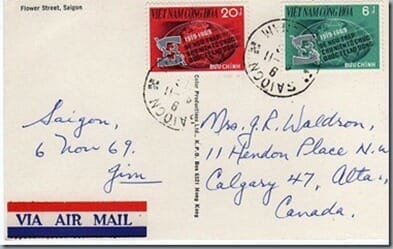 Flower Street, Saigon
VIỆT NAM CỘNG HÒA
20đ
1919-1969
BƯU CHÍNH
VIỆT NAM CỘNG HÒA
6đ
1919-1969
BƯU CHÍNH
SAIGON
SAIGON
Saigon,
6 Nov 69.
Jim
VIA AIR MAIL
Color Productions Ltd. K.P.O. Box 6521 Hong Kong
Mrs. J.R. Waldron,
11 Hendon Place N.W
Calgary 47, Alta.,
Canada.